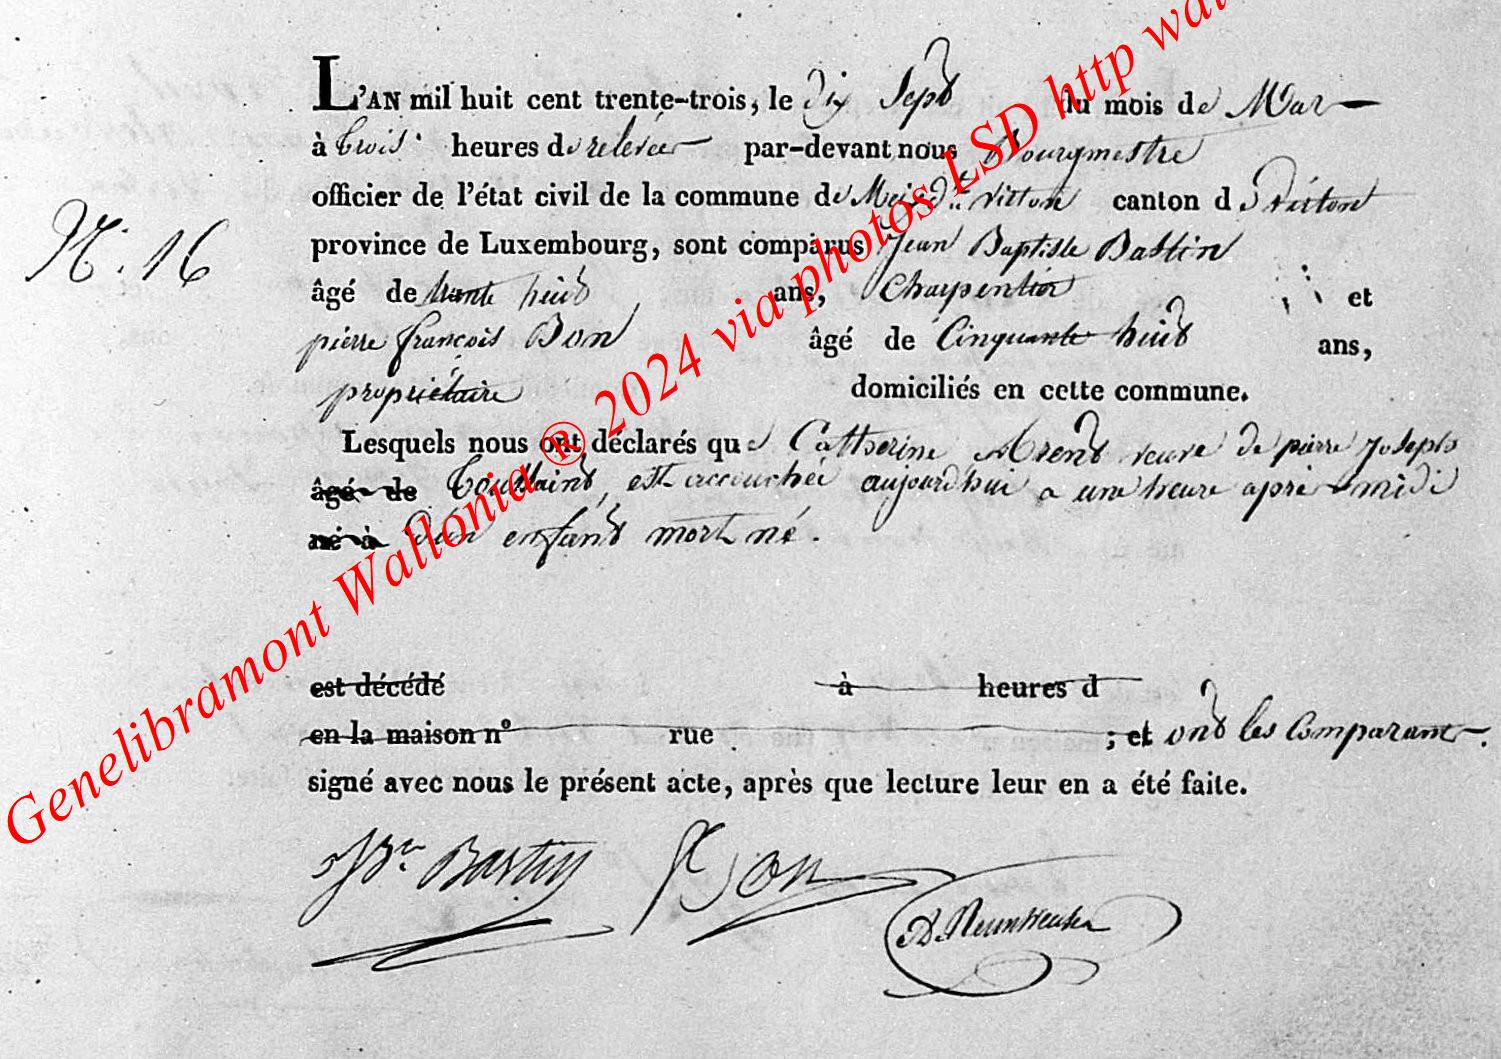 L'AN mil huit cent trente-trois, le dix Sept du mois de Mar
à trois heures de relevée par-devant nous Bourgmestre
officier de l'état civil de la commune de Meix dt. virton canton d virton
N. 16
province de Luxembourg, sont comparus Jean Baptiste Bastin
âgé de trente huit ans, Charpentier et
pierre françois Bon âgé de Cinquante huit ans,
propriétaire domiciliés en cette commune.
Lesquels nous ont déclarés que Catherine Arend veuve de pierre Joseph
âgé de Toussaint, est accouchée aujourd'hui a une heure apré midi
né à d'un enfant mort né.
est décédé à heures d
en la maison n° rue ; et ont les Comparant
signé avec nous le présent acte, après que lecture leur en a été faite.
Bastin Bon
Genelibramont Wallonia ® 2024 via photos LSD http wal